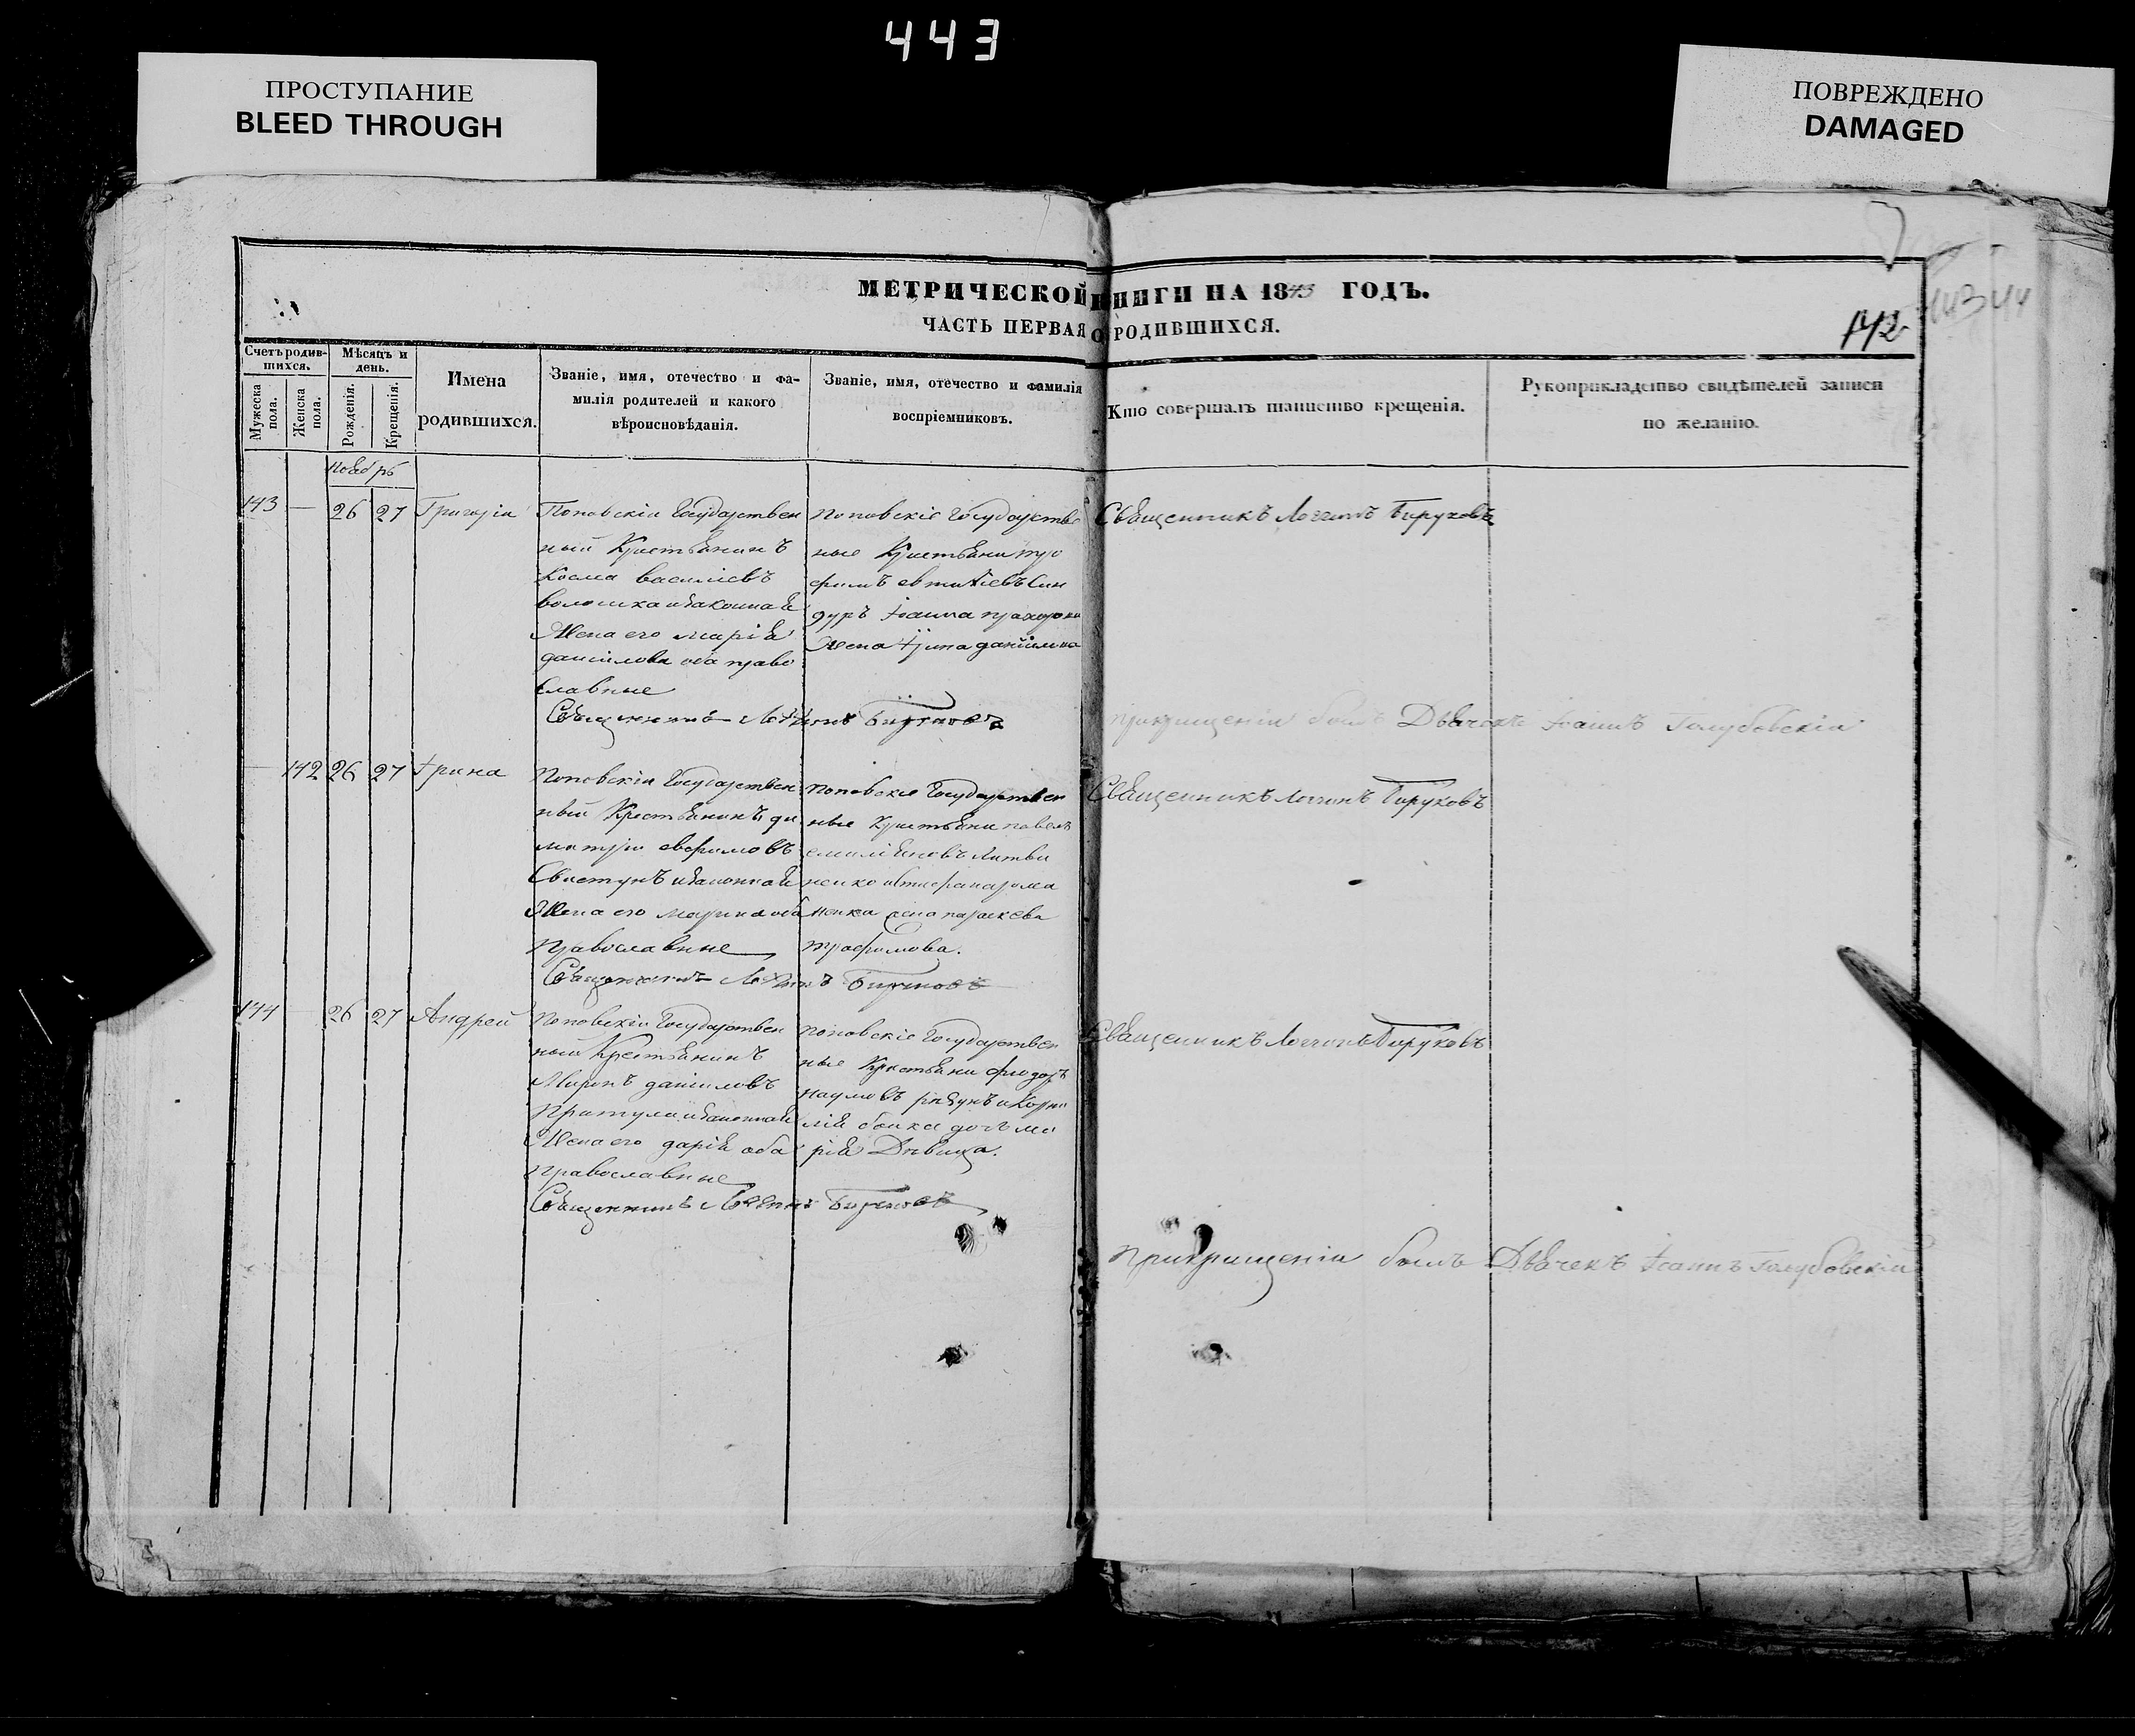 443
ПРОСТУПАНИЕ
BLEED THROUGH
ПОВРЕЖДЕНО
DAMAGED
МЕТРИЧЕСКОЙ КНИГИ НА 1843 ГОДЪ.
ЧАСТЬ ПЕРВАЯ О РОДИВШИХСЯ.
142
Счетъ родив-
шихся.
Мужеска пола.
Женска пола.
Мѣсяцъ и
день.
Рожденія.
Крещенія.
Имена
родившихся.
Званіе, имя, отечество и фа-
милія родителей и какого
вѣроисповѣданія.
Званіе, имя, отечество и фамилія
воспріемниковъ.
Кто совершалъ таинство крещенія.
Рукоприкладство свидѣтелей записи
по желанію.
Ноябрь
143 — 26 27 Григорій
Поповскій Государствен
ный Крестьянинъ
Косма василіевъ
волошка и законная
Жена его марія
даніилова оба право
славные
Поповскіе Государстве
ные Крестьяни тро
фимъ
Іоанна
жена Ірина
Священникъ Логгинъ Бируковъ
Священникъ Логгинъ Бируковъ
при крещеніи былъ Дьячекъ Іоаннъ Голубовскій
— 142 26 27 Ірина
Поповскій Государствен
ный Крестьянинъ ди
митрій ефремовъ
Свистунъ и законная
Жена его марина оба
православные
Поповскіе Государствен
ные Крестьяни павелъ
емиліановъ Литви
ненко
менка жена параскева
трофимова.
Священникъ Логгинъ Бируковъ
Священникъ Логгинъ Бируковъ
144 — 26 27 Андрей
Поповскій Государствен
ный Крестьянинъ
Миронъ даніиловъ
Притула и законная
Жена его дарія оба
православные
Поповскіе Государствен
ные Крестьяни феодоръ
наумовъ
дочь ма
рія Дѣвица.
Священникъ Логгинъ Бируковъ
Священникъ Логгинъ Бируковъ
при крещеніи былъ Дьячекъ Іоаннъ Голубовскій